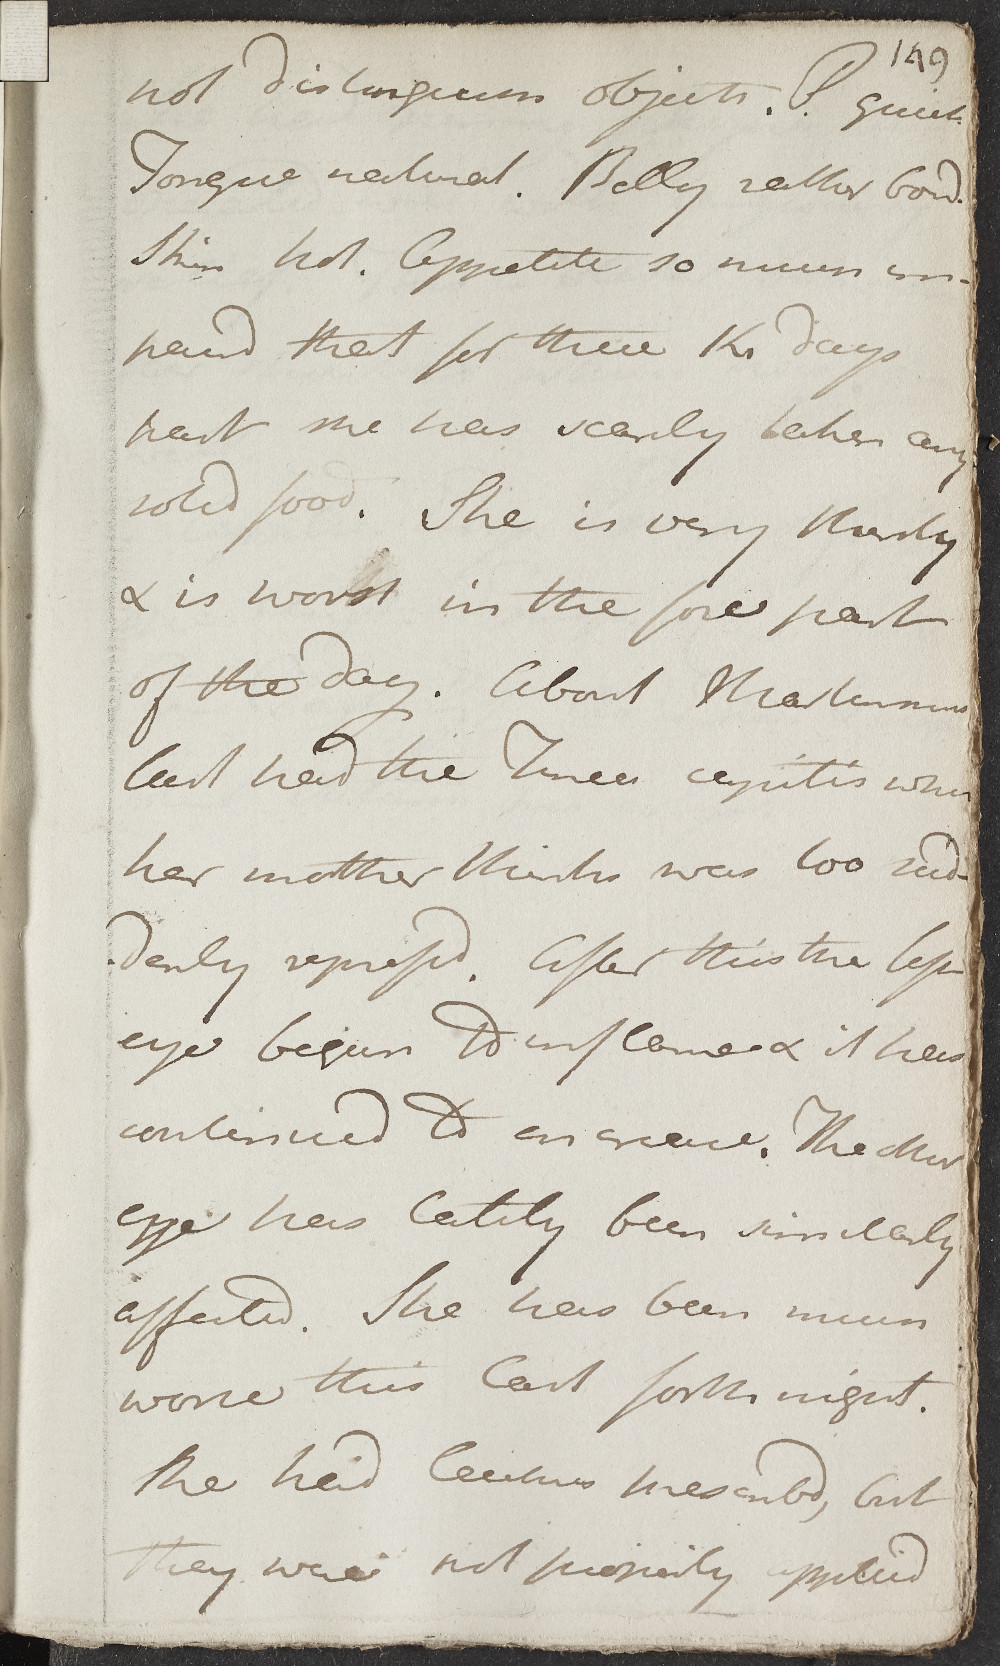 149
not distinguish objects. P. quick
Tongue natural. Belly rather bound.
Skin hot. Appetite so much im-
paird that for these days
past she has scarcely taken any
solid food. She is very thirsty
& is worst in the fore part
of the day. About Martinmas
last had the Tinea capitis which
her mother thinks was too sud-
denly repressd. After this the left
eye begun to inflame & it has
continued to increase. The other
eye has lately been similarly
affected. She has been much
worse this last forthnight.
She had leeches prescribd, but
they were not properly applied